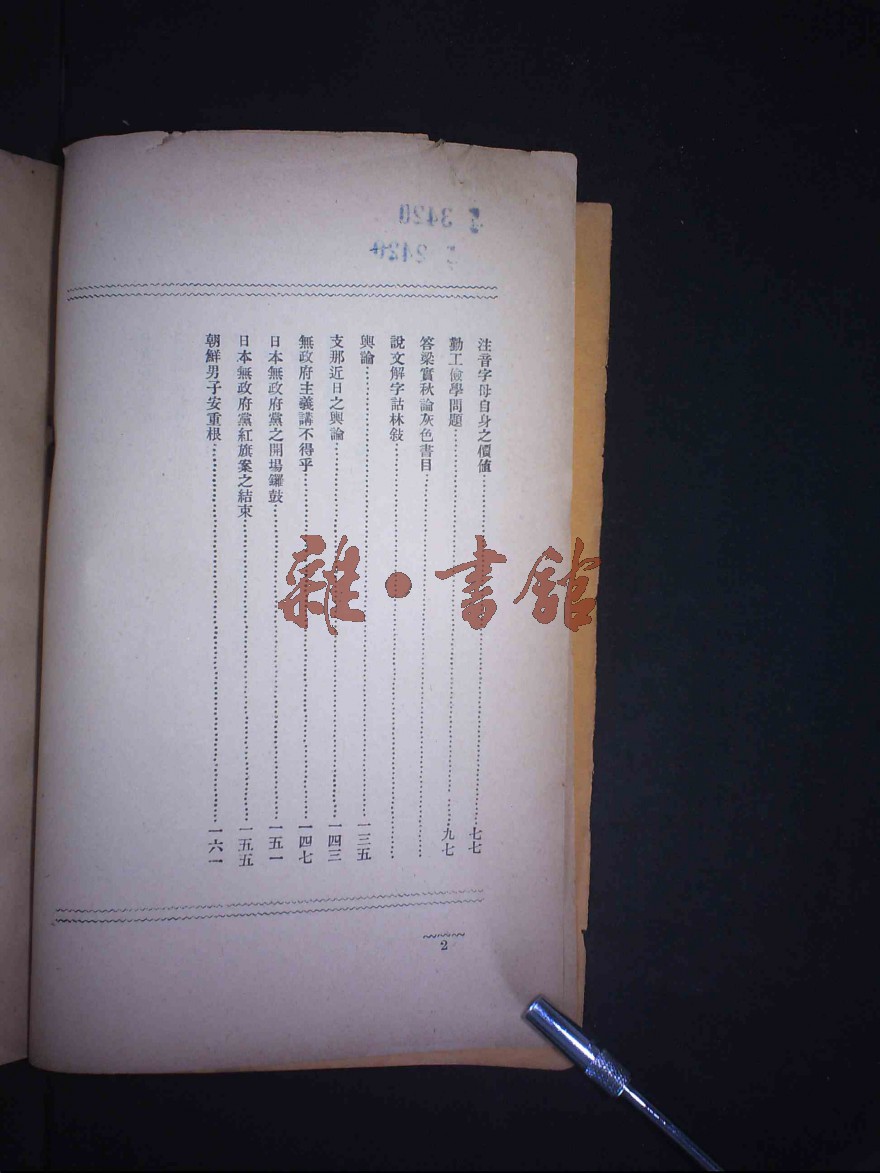 注音字母自身之價值⋯⋯七七
勤工儉學問題⋯⋯九七
答梁實秋論灰色書目⋯⋯
說文解字詁林敍⋯⋯
輿論⋯⋯一三五
支那近日之輿論⋯⋯一四三
無政府主義講不得乎⋯⋯一四七
日本無政府黨之開場鑼鼓⋯⋯一五一
日本無政府黨紅旗案之結束⋯⋯一五五
朝鮮男子安重根⋯⋯一六一
2
雜·書館
3420
2420